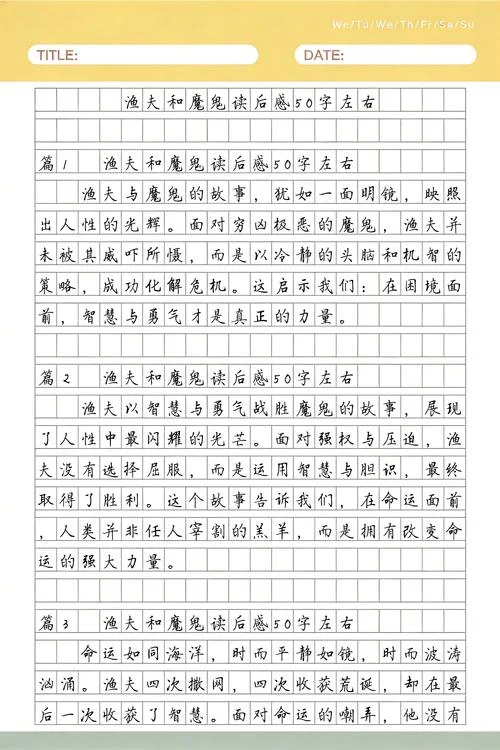 We/Tu/We/Th/Fr/Sa/Su
TITLE:
DATE:
渔夫和魔鬼读后感50字左右
篇1 渔夫和魔鬼读后感50字左右
渔夫与魔鬼的故事，犹如一面明镜，映照
出人性的光辉。面对穷凶极恶的魔鬼，渔夫并
未被其威吓所慑，而是以冷静的头脑和机智的
策略，成功化解危机。这启示我们：在困境面
前，智慧与勇气才是真正的力量。
篇2 渔夫和魔鬼读后感50字左右
渔夫以智慧与勇气战胜魔鬼的故事，展现
了人性中最闪耀的光芒。面对强权与压迫，渔
夫没有选择屈服，而是运用智慧与胆识，最终
取得了胜利。这个故事告诉我们，在命运面前
，人类并非任人宰割的羔羊，而是拥有改变命
运的强大力量。
篇3 渔夫和魔鬼读后感50字左右
命运如同海洋，时而平静如镜，时而波涛
汹涌。渔夫四次撒网，四次收获荒诞，却在最
后一次收获了智慧。面对命运的嘲弄，他没有